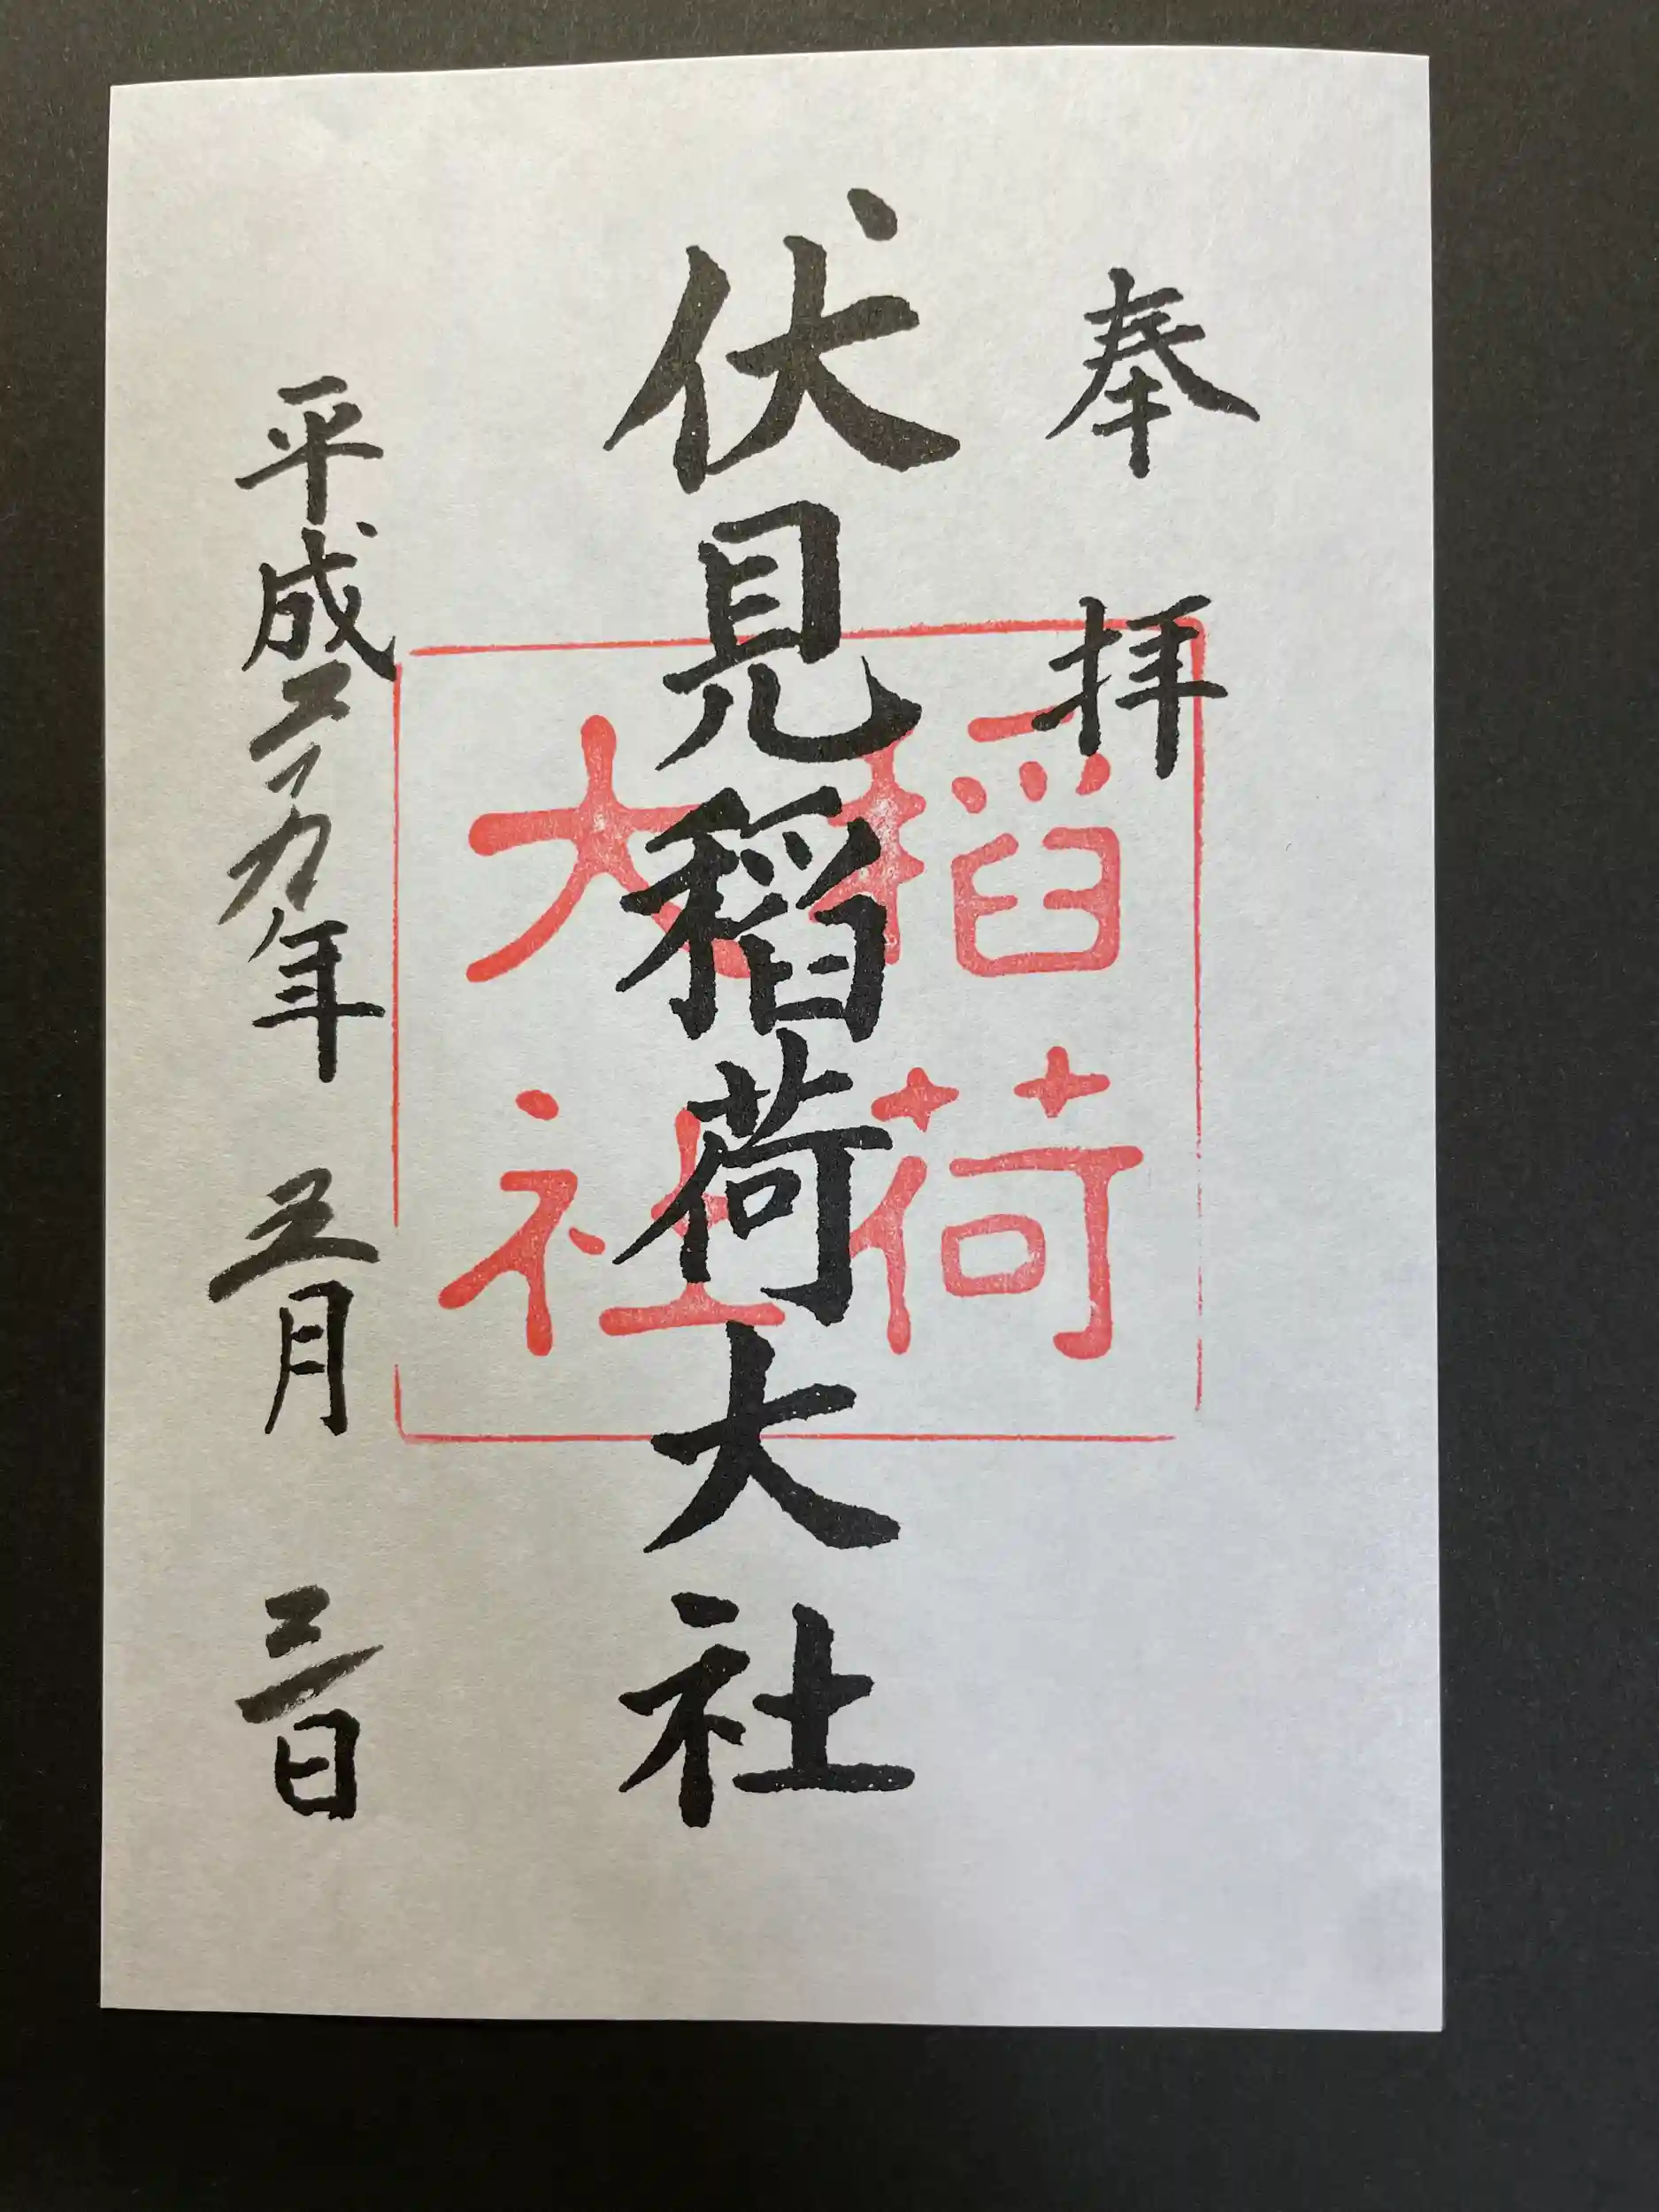 奉拝
伏見稲荷大社
平成二十九年 五月 三日
稲荷
大社